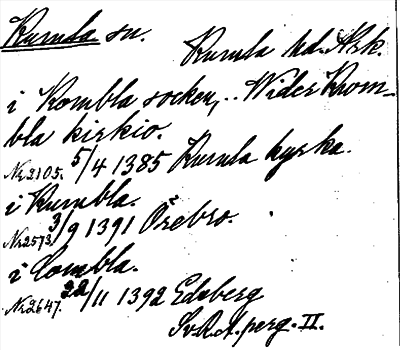 Kumla sn.
Kumla hd. Nrk.
i Kombla socken,.. Wider Kom-
bla kirkio.
Nr 2105. 5/4 1385 Kumla kyrka.
i Kumbla.
Nr 2573 3/9 1391 Örebro.
i Combla.
Nr 2647. 22/11 1392 Edsberg
Sv.R.A. perg. II.